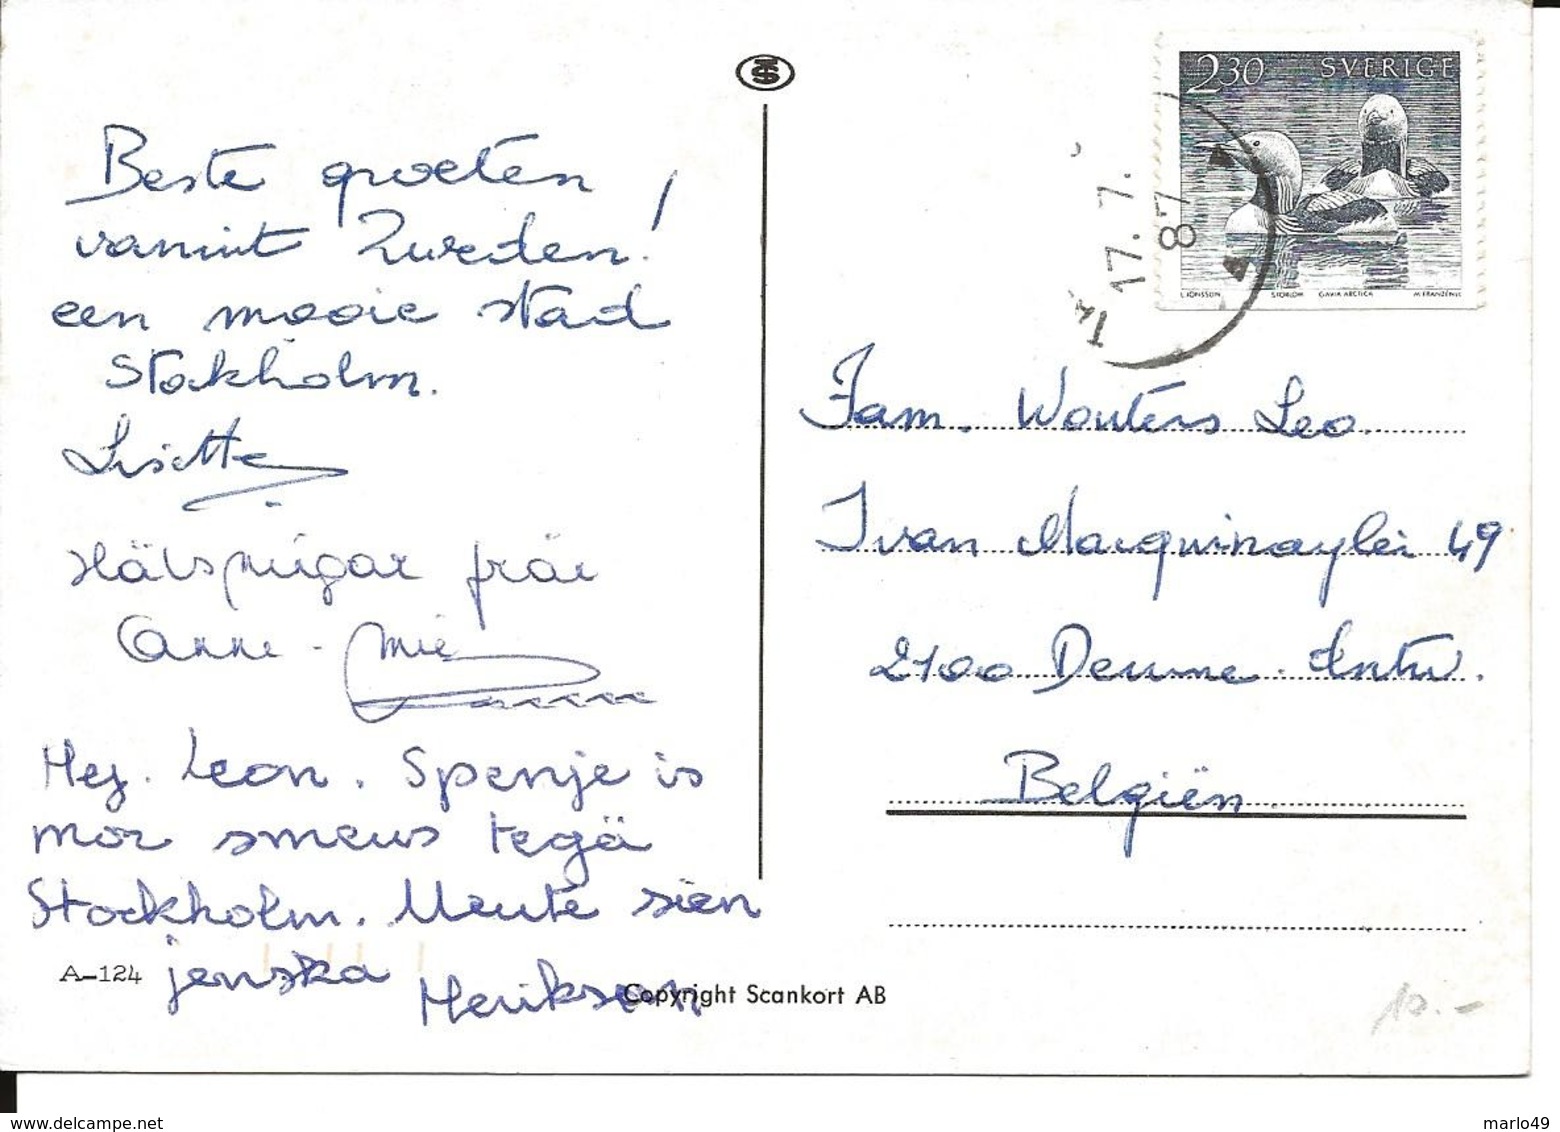 Beste groeten
vanuit Zweden!
een mooie stad
Stokholm.
Lisette
Hälsningar från
Anne-Mie
Hej. Leon. Spenje is
mor smeus tegä
Stockholm. Meute sien
jenska
Henikson
A-124
Copyright Scankort AB
2.30 SVERIGE
L. JONSSON STORLOM GAVIA ARCTICA M. FRANZÉN SC
17. 7.
87
Fam. Wouters Leo.
Ivan Macquinaylei 49
2100 Deurne. Antw.
Belgiën.
10.-
www.delcampe.net
marlo49